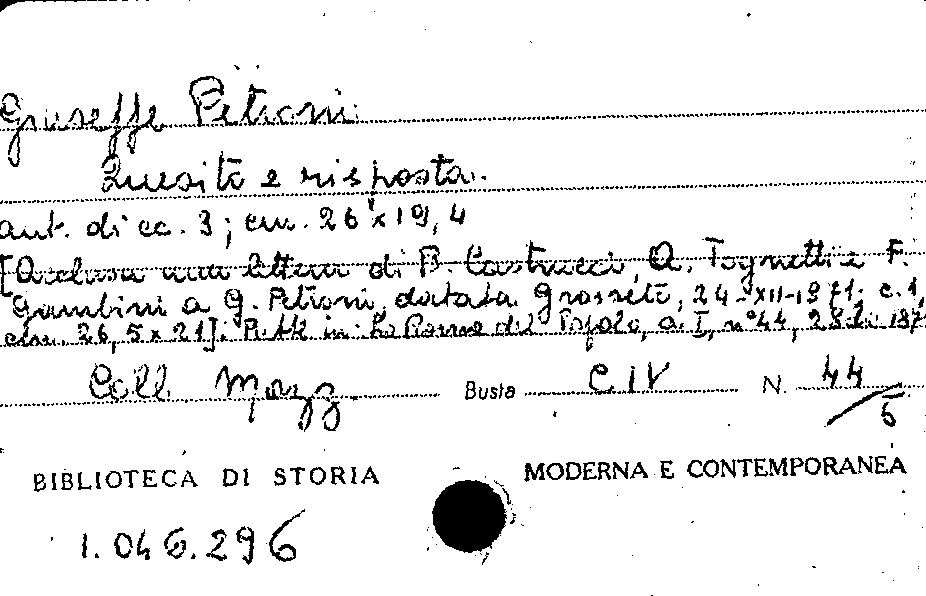 Giuseppe Petroni
Quesito e risposta.
aut. di cc. 3; cm. 26 x 19,4
[Acclusa una lettera di B. Castrucci, A. Tognetti e F.
Gambini a G. Petroni, datata Grosseto, 24-XII-1971. c. 1,
cm. 26,5 x 21]. in: La Roma del Popolo, a. I, n° 44, 187
Coll. Mazz. Busta CIV N. 44/5
BIBLIOTECA DI STORIA MODERNA E CONTEMPORANEA
1.046.296